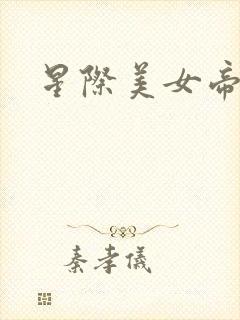 星際美女帝
秦孝儀